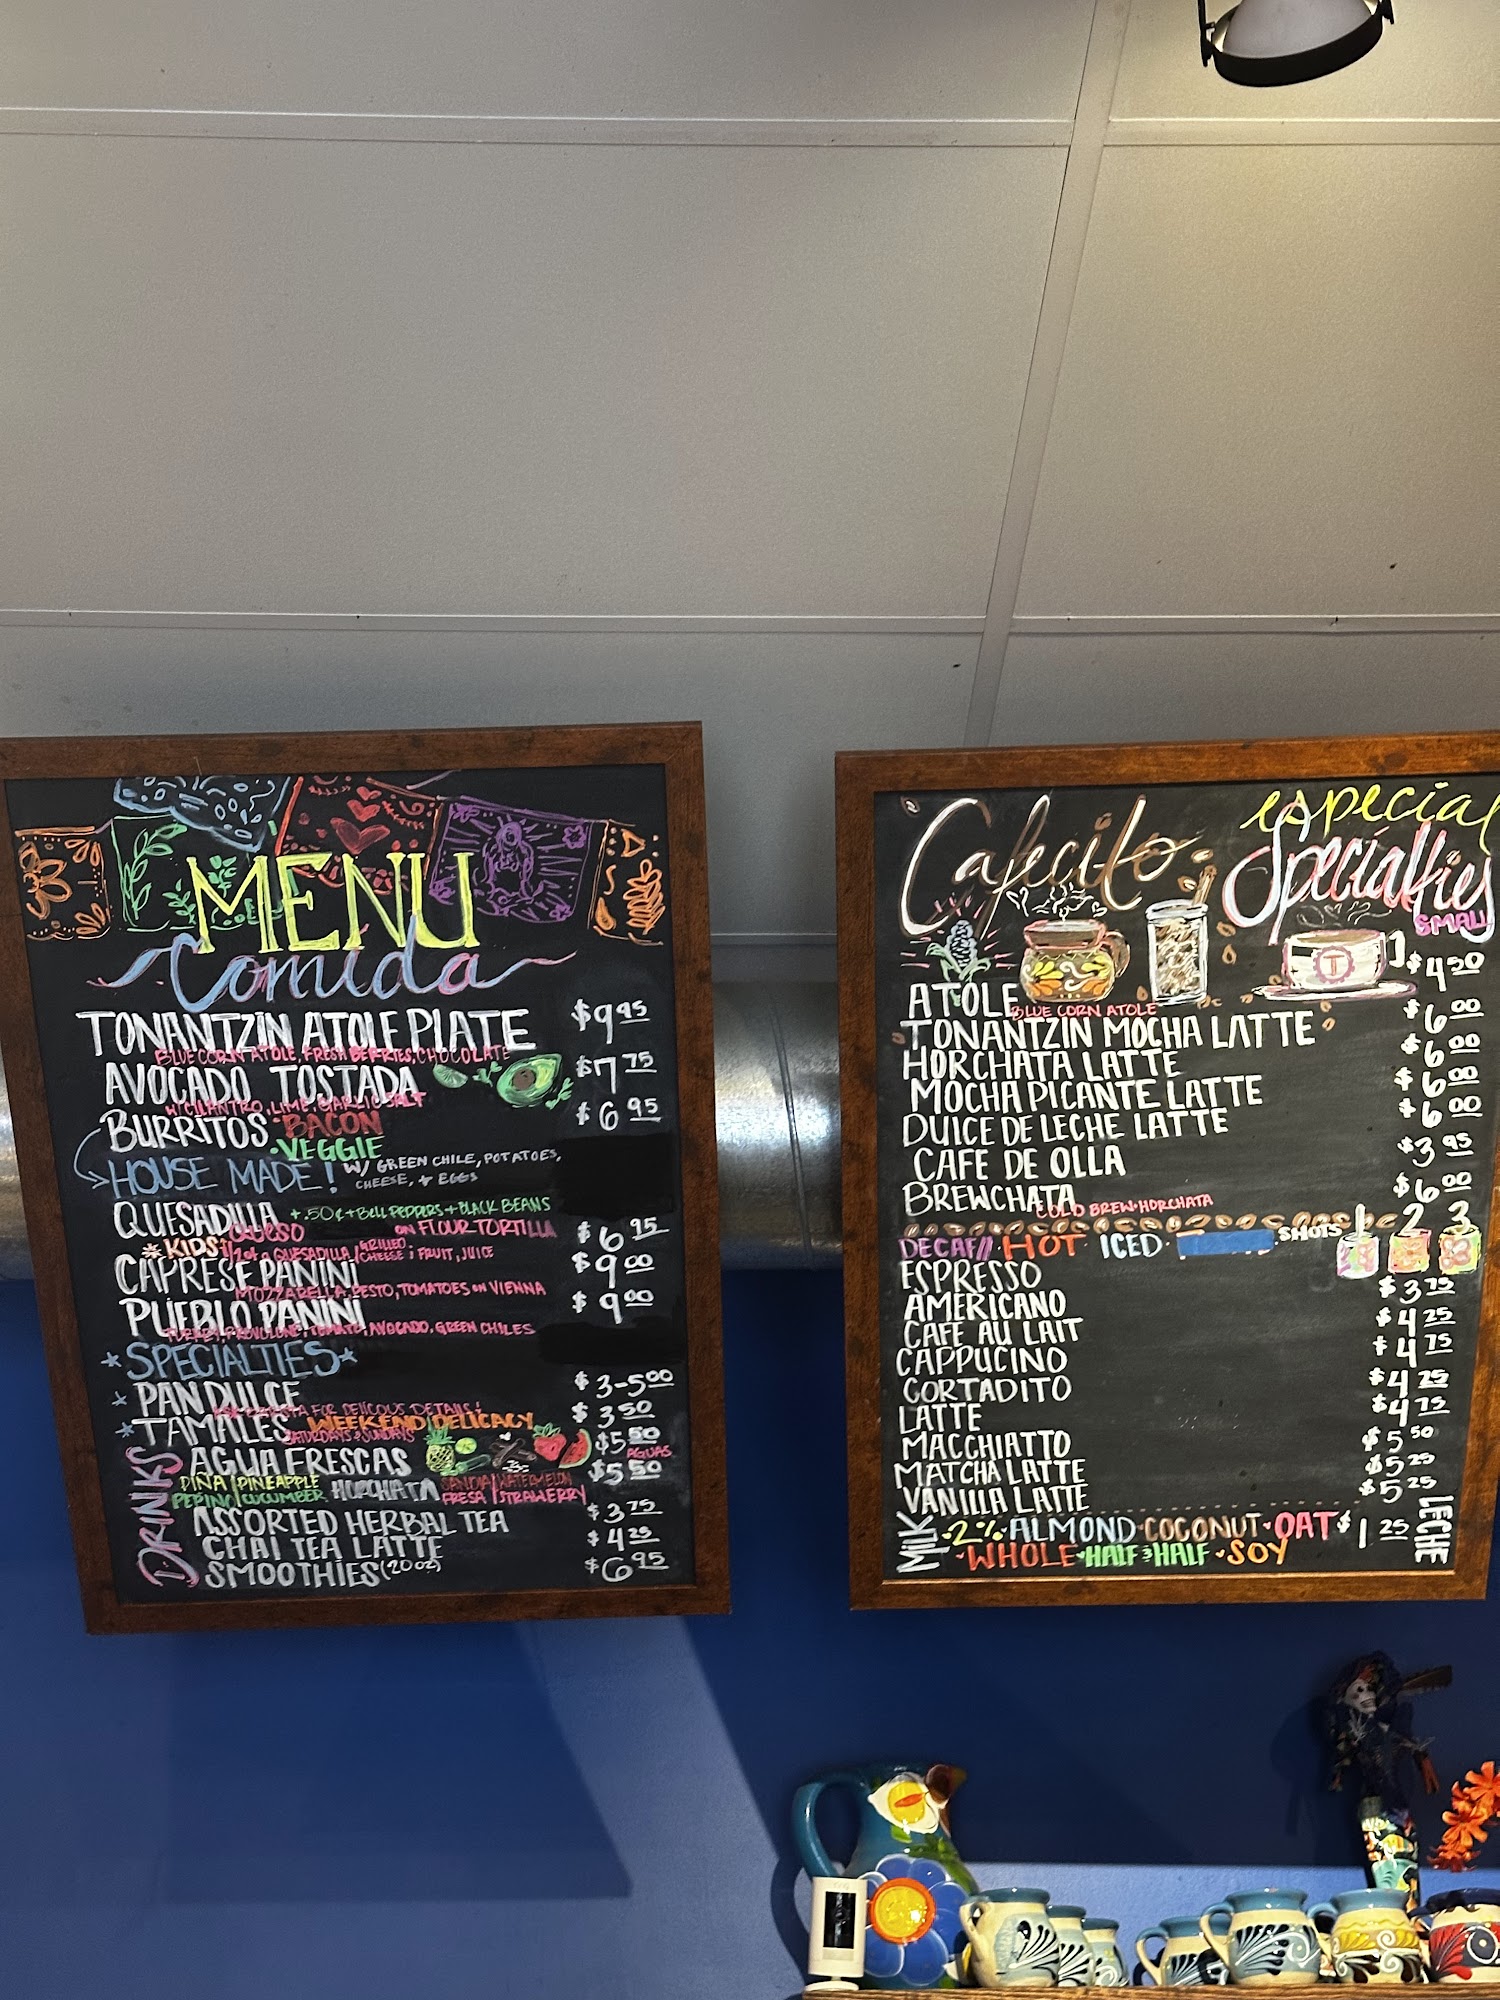 MENU
Comida
TONANTZIN ATOLE PLATE $9.95
BLUE CORN ATOLE, FRESH BERRIES, CHOCOLATE
AVOCADO TOSTADA $7.75
W/ CILANTRO, LIME, GARLIC SALT
BURRITOS • BACON $6.95
• VEGGIE
HOUSE MADE! W/ GREEN CHILE, POTATOES,
CHEESE, + EGGS
QUESADILLA + .50¢ + BELL PEPPERS + BLACK BEANS
QUESO ON FLOUR TORTILLA $6.95
KIDS 1/2 of a QUESADILLA / GRILLED CHEESE; FRUIT, JUICE
CAPRESE PANINI $9.00
MOZZARELLA, PESTO, TOMATOES ON VIENNA
PUEBLO PANINI $9.00
TURKEY, PROVOLONE, TOMATO, AVOCADO, GREEN CHILES
SPECIALTIES
PAN DULCE $3-5.00
FOR DELICIOUS DETAILS!
TAMALES WEEKEND DELICACY $3.50
SATURDAYS & SUNDAYS
DRINKS
AGUA FRESCAS $5.50
AGUAS
$5.50
PIÑA | PINEAPPLE HORCHATA SANDIA | WATERMELON
PEPINO | CUCUMBER FRESA | STRAWERRY
ASSORTED HERBAL TEA $3.75
CHAI TEA LATTE $4.25
SMOOTHIES (20oz) $6.95
Cafecito especial
Specialties
SMALL
T
ATOLE $4.50
BLUE CORN ATOLE
TONANTZIN MOCHA LATTE $6.00
HORCHATA LATTE $6.00
MOCHA PICANTE LATTE $6.00
DULCE DE LECHE LATTE $6.00
CAFE DE OLLA $3.95
BREWCHATA $6.00
COLD BREW + HORCHATA
DECAF // HOT ICED • SHOTS 1 2 3
ESPRESSO $3.75
AMERICANO $4.25
CAFE AU LAIT $4.75
CAPPUCINO
CORTADITO $4.25
LATTE $4.75
MACCHIATTO $5.50
MATCHA LATTE $5.25
VANILLA LATTE $5.25
MILK • 2% • ALMOND • COCONUT • OAT $1.25 LECHE
• WHOLE • HALF & HALF • SOY